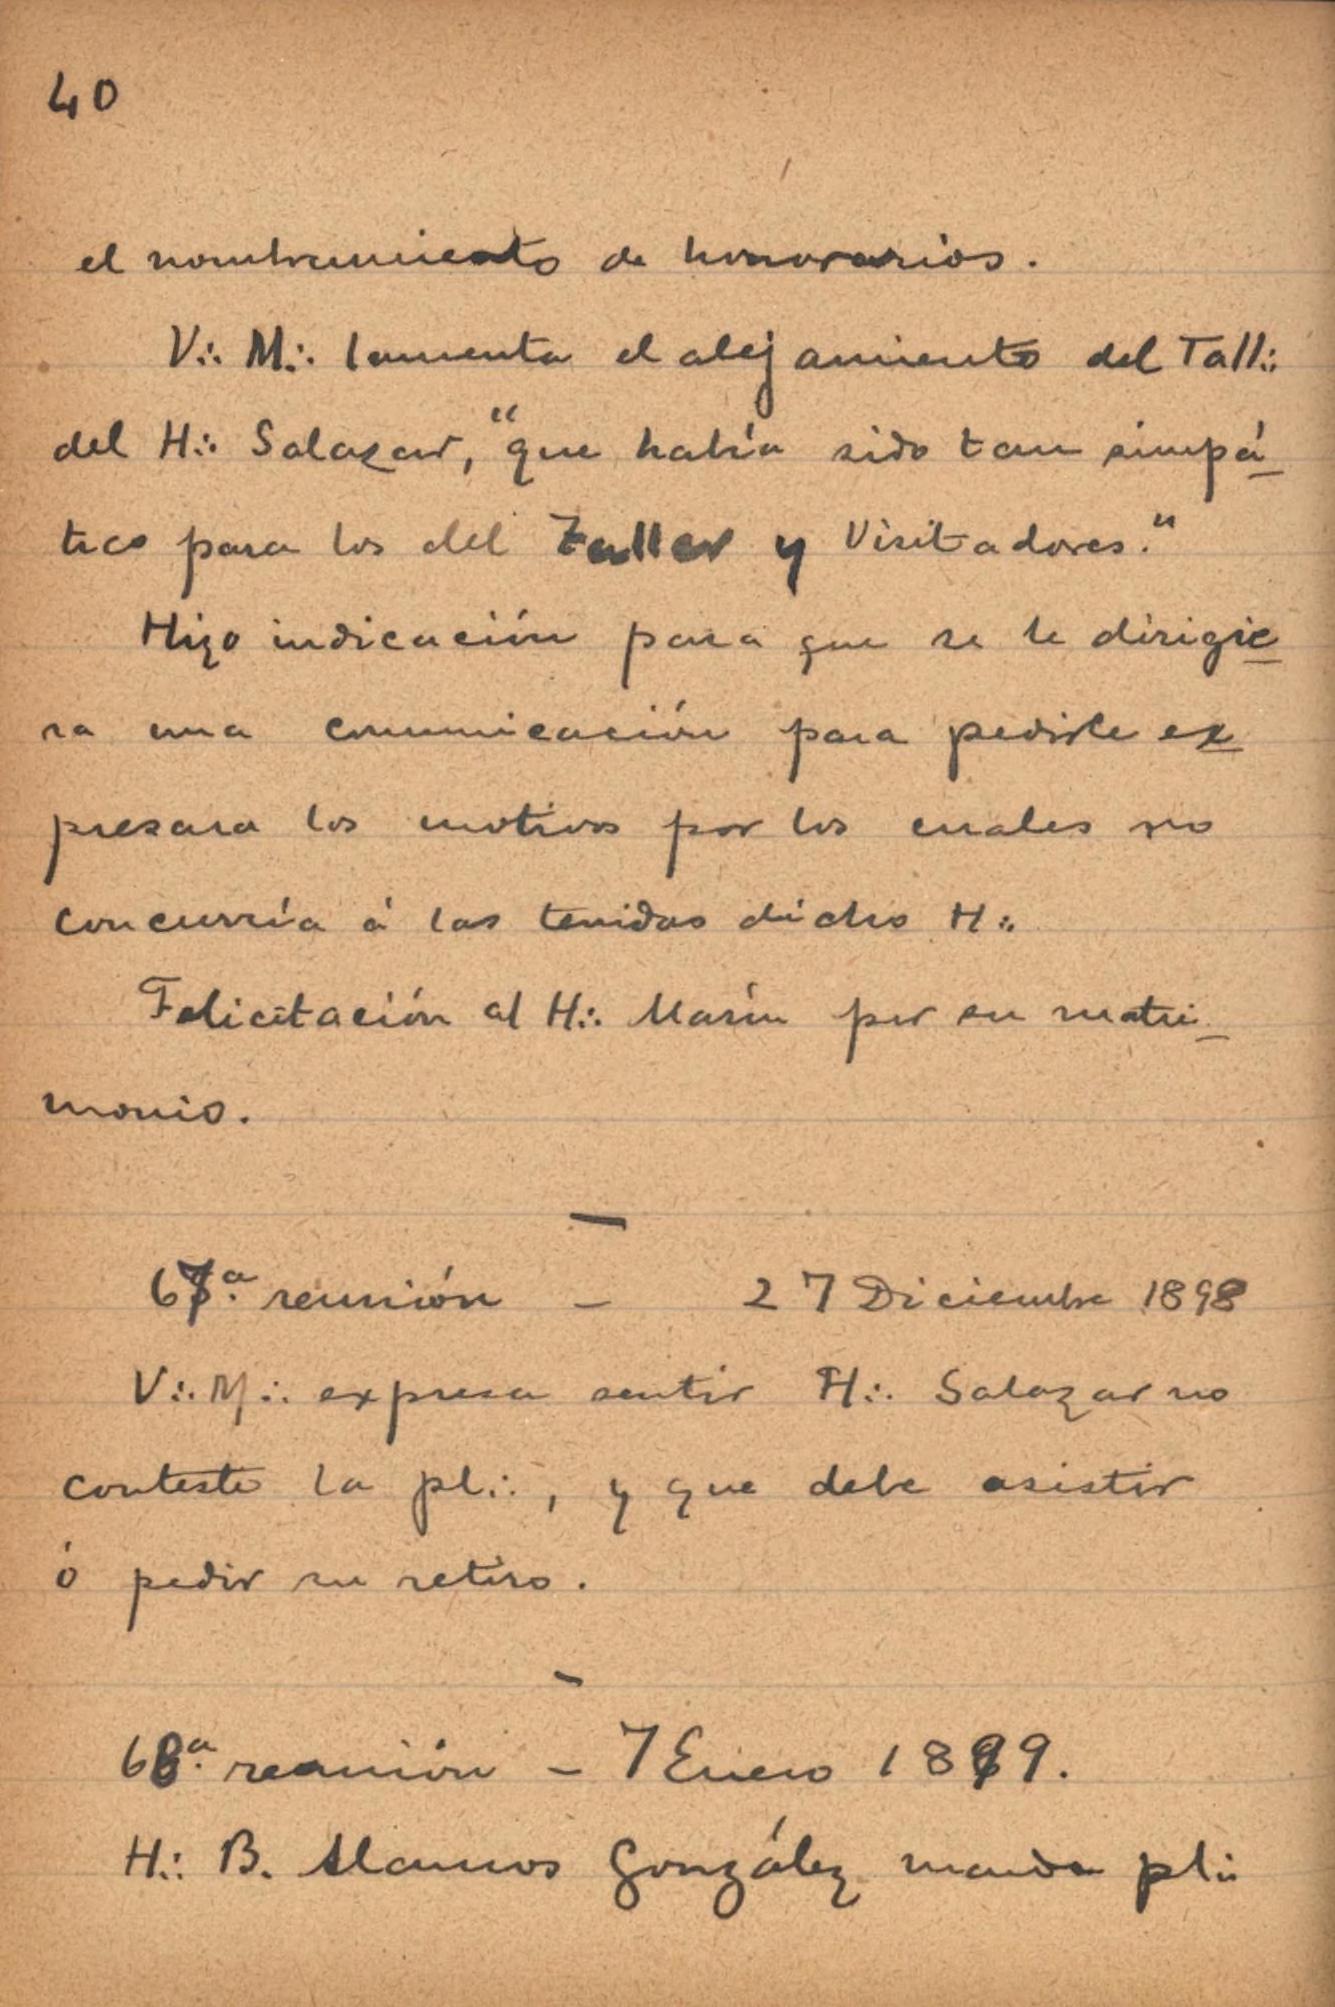 40
el nombramiento de honorarios.
V∴ M∴ lamenta el alejamiento del Tall∴
del H∴ Salazar, "que había sido tan simpá-
tico para los del Taller y Visitadores."
Hizo indicación para que se le dirigie-
ra una comunicación para pedirle ex-
presara los motivos por los cuales no
concurría á las tenidas dicho H∴
Felicitación al H∴ Marín por su matri-
monio.
—
67ª. reunión – 27 Diciembre 1898
V∴ M∴ expresa sentir H∴ Salazar no
conteste la pl∴, y que debe asistir
ó pedir su retiro.
—
68ª. reunión – 7 Enero 1899.
H∴ B. Alamos González manda pl∴